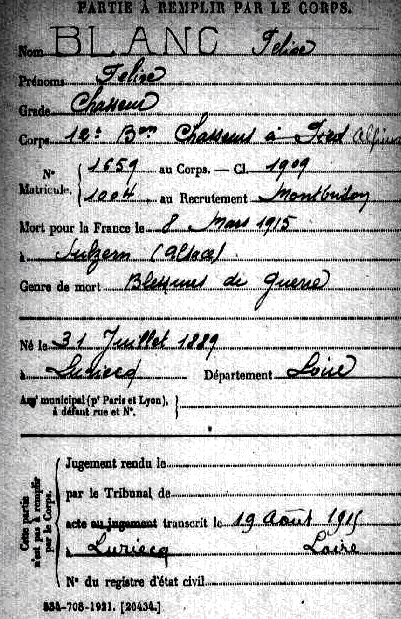 PARTIE À REMPLIR PAR LE CORPS.
Nom BLANC Felise
Prénoms Felise
Grade Chasseur
Corps 12e Bon Chasseurs à Pied Alpins
N° Matricule. { 1659 au Corps. — Cl. 1909
1004 au Recrutement Montbrison
Mort pour la France le 8 Mars 1915
à Sulzern (Alsace)
Genre de mort Blessures de Guerre
Né le 31 Juillet 1889
à Luriecq Département Loire
Arrt municipal (pr Paris et Lyon), à défaut rue et N°. }
Cette partie n'est pas à remplir par le Corps. {
Jugement rendu le
par le Tribunal de
acte au jugement transcrit le 19 Août 1915
à Luriecq Loire
N° du registre d'état civil
534-708-1921. [20434.]